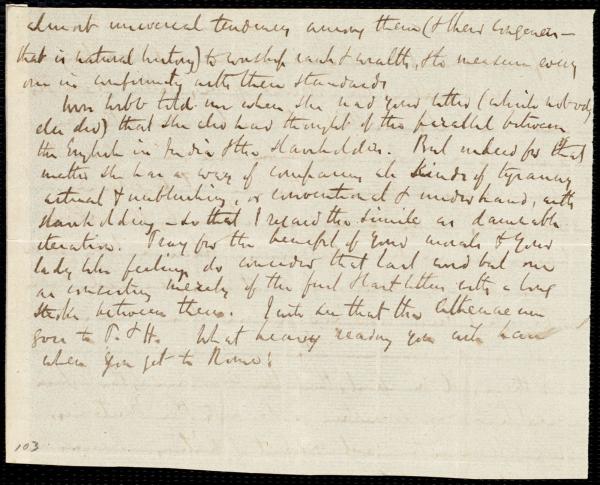 almost universal tendency among them (& their congeners —
that is natural history) to worship rank & wealth, & to measure every
one in conformity with these standards
Mrs Webb told me when she had your letter (which nobody
else did) that she also had thought of the parallel between
the English in India & the slaveholders. But indeed for that
matter she has a way of comparing all kinds of tyranny
actual & unblushing, or conventional & underhand, with
slaveholding — so that I regard the simile as damnable
iteration. Pray for the benefit of your morals & your
lady like feelings do consider that last word but one
as consisting merely of the first & last letters with a long
stroke between them. I will see that the Athenaeum
goes to P. & H. What heavy reading you will have
when you get to Rome!
103